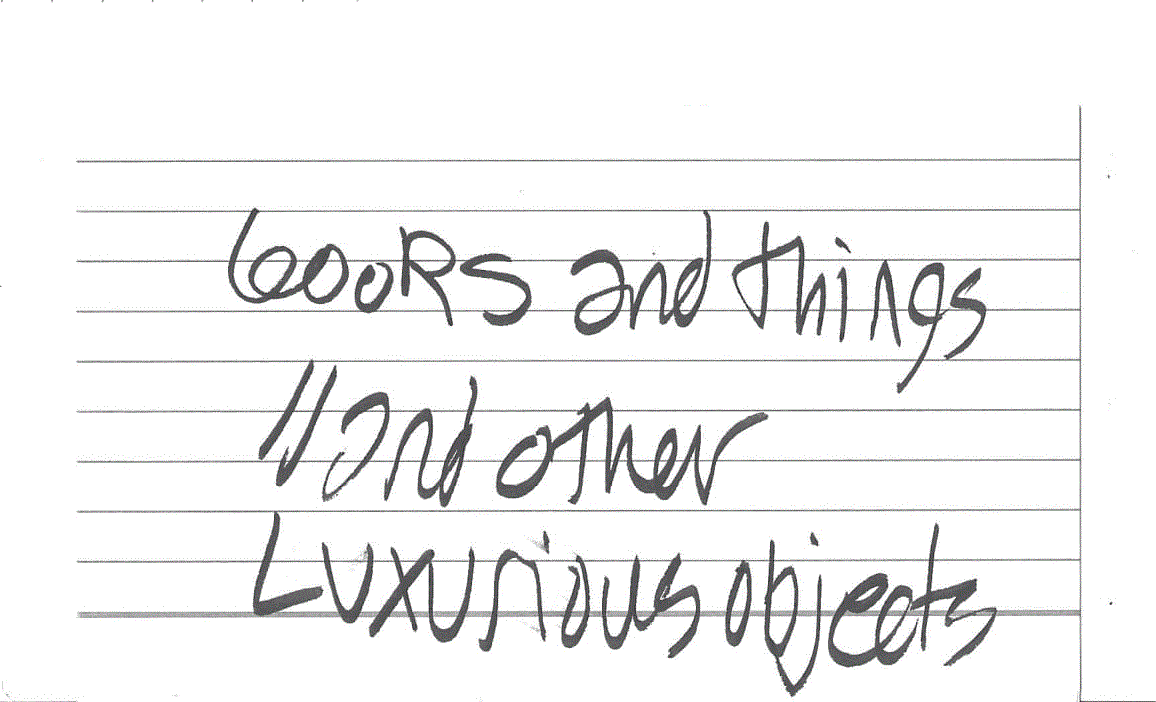 books and things
" and other
Luxurious objects